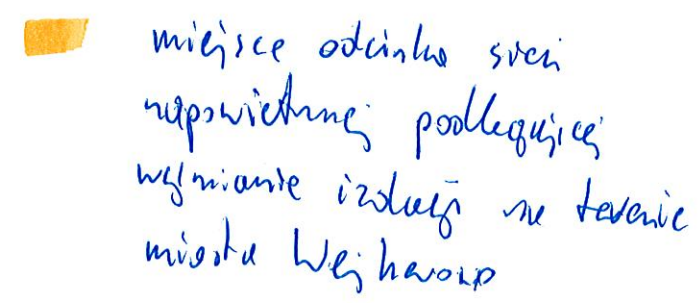 miejsce odcinka sieci
napowietrznej podlegającej
wymianie izolacji na terenie
miasta Wejherowo